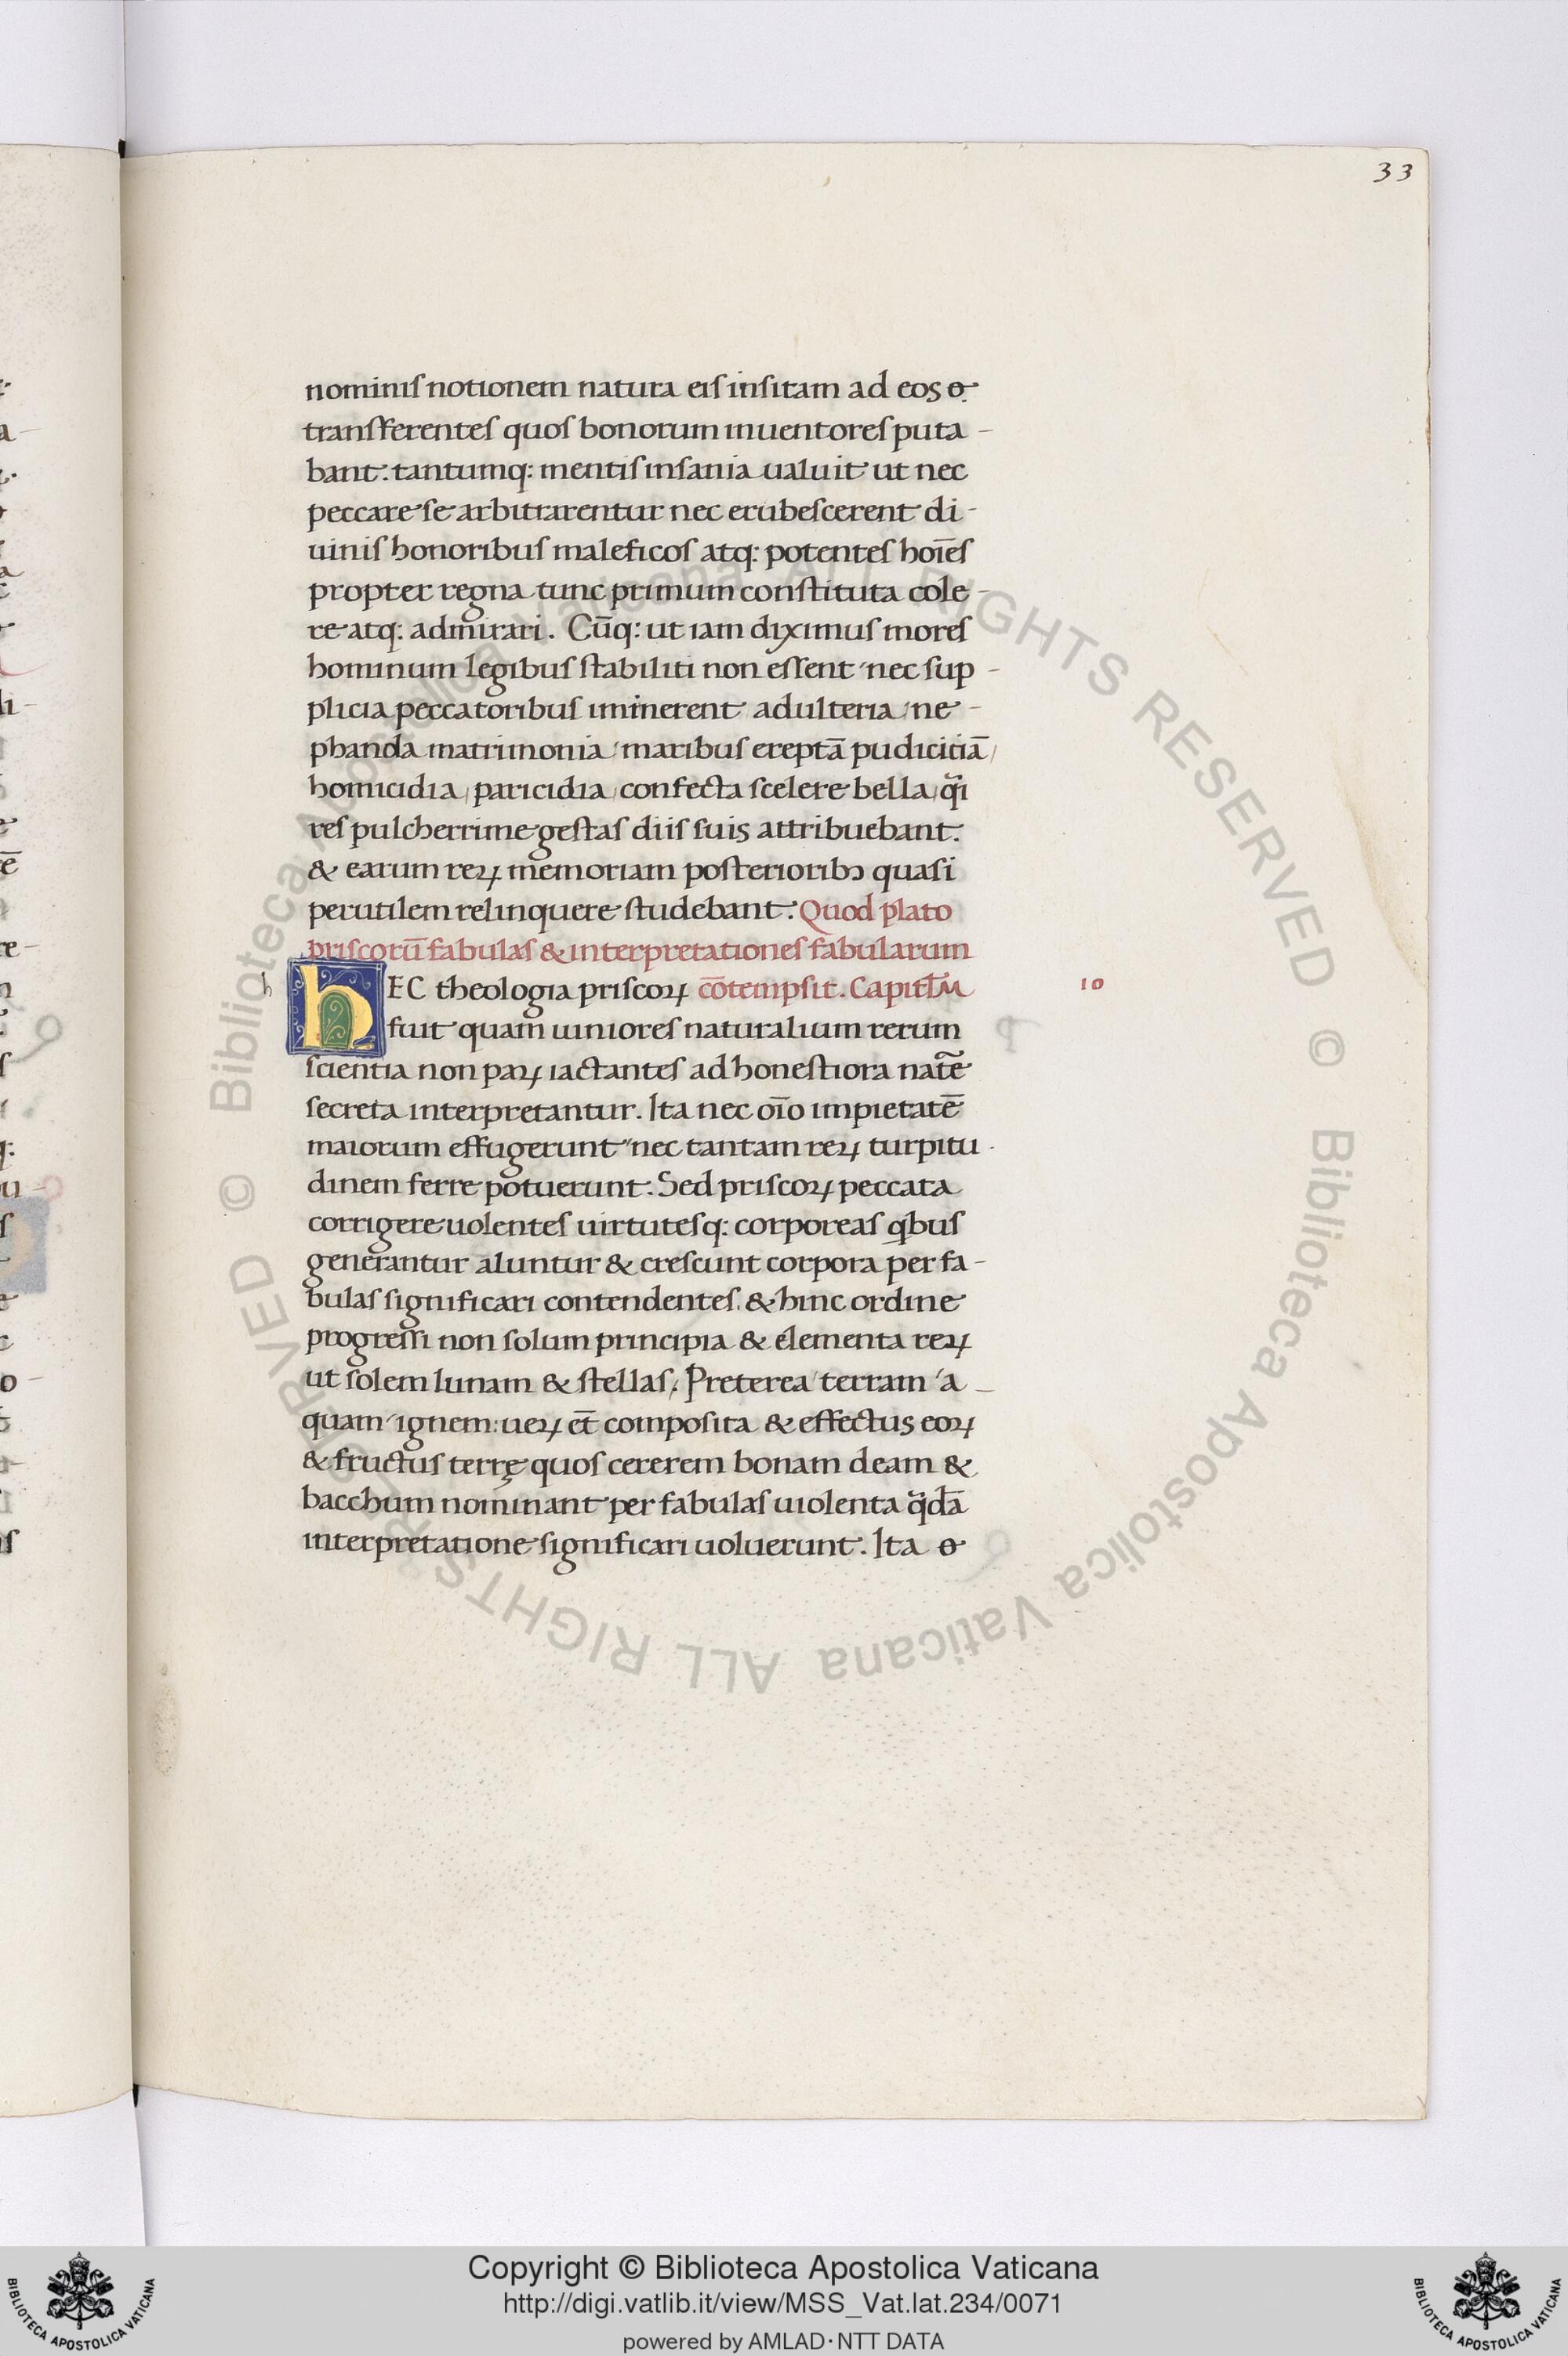 33
nominis notionem natura eis insitam ad eos
transferentes quos bonorum inuentores puta-
bant. tantumq: mentis insania ualuit ut nec
peccare se arbitrarentur nec erubescerent di-
uinis honoribus maleficos atq: potentes hoīes
propter regna tunc primum constituta cole-
re atq: admirari. Cūq: ut iam diximus mores
hominum legibus stabiliti non essent nec sup-
plicia peccatoribus iminerent adulteria/ ne-
phanda matrimonia/ maribus ereptā pudicitiā/
homicidia/ paricidia/ confecta scelere bella/ q̃i
res pulcherrime gestas diis suis attribuebant.
& earum reꝝ memoriam posterioribꝫ quasi
perutilem relinquere studebant. Quod plato
priscorū fabulas & interpretationes fabularum
hEC theologia priscoꝝ cōtempsit. Capitl̄m 10
fuit quam iuniores naturalium rerum
scientia non paꝝ iactantes ad honestiora nat̃e
secreta interpretantur. Ita nec oīo impietatē
maiorum effugerunt nec tantam reꝝ turpitu-
dinem ferre potuerunt. Sed priscoꝝ peccata
corrigere uolentes uirtutesq: corporeas qbus
generantur aluntur & crescunt corpora per fa-
bulas significari contendentes. & hinc ordine
progressi non solum principia & elementa reꝝ
ut solem lunam & stellas; Preterea/ terram/ a-
quam/ ignem: ueꝝ et̄ composita & effectus eoꝝ
& fructus terrę quos cererem bonam deam &
bacchum nominant per fabulas uiolenta q̃dā
interpretatione significari uoluerunt. Ita
© Biblioteca Apostolica Vaticana ALL RIGHTS RESERVED © Biblioteca Apostolica Vaticana ALL RIGHTS RESERVED
Copyright © Biblioteca Apostolica Vaticana
http://digi.vatlib.it/view/MSS_Vat.lat.234/0071
powered by AMLAD·NTT DATA
BIBLIOTECA APOSTOLICA VATICANA
BIBLIOTECA APOSTOLICA VATICANA